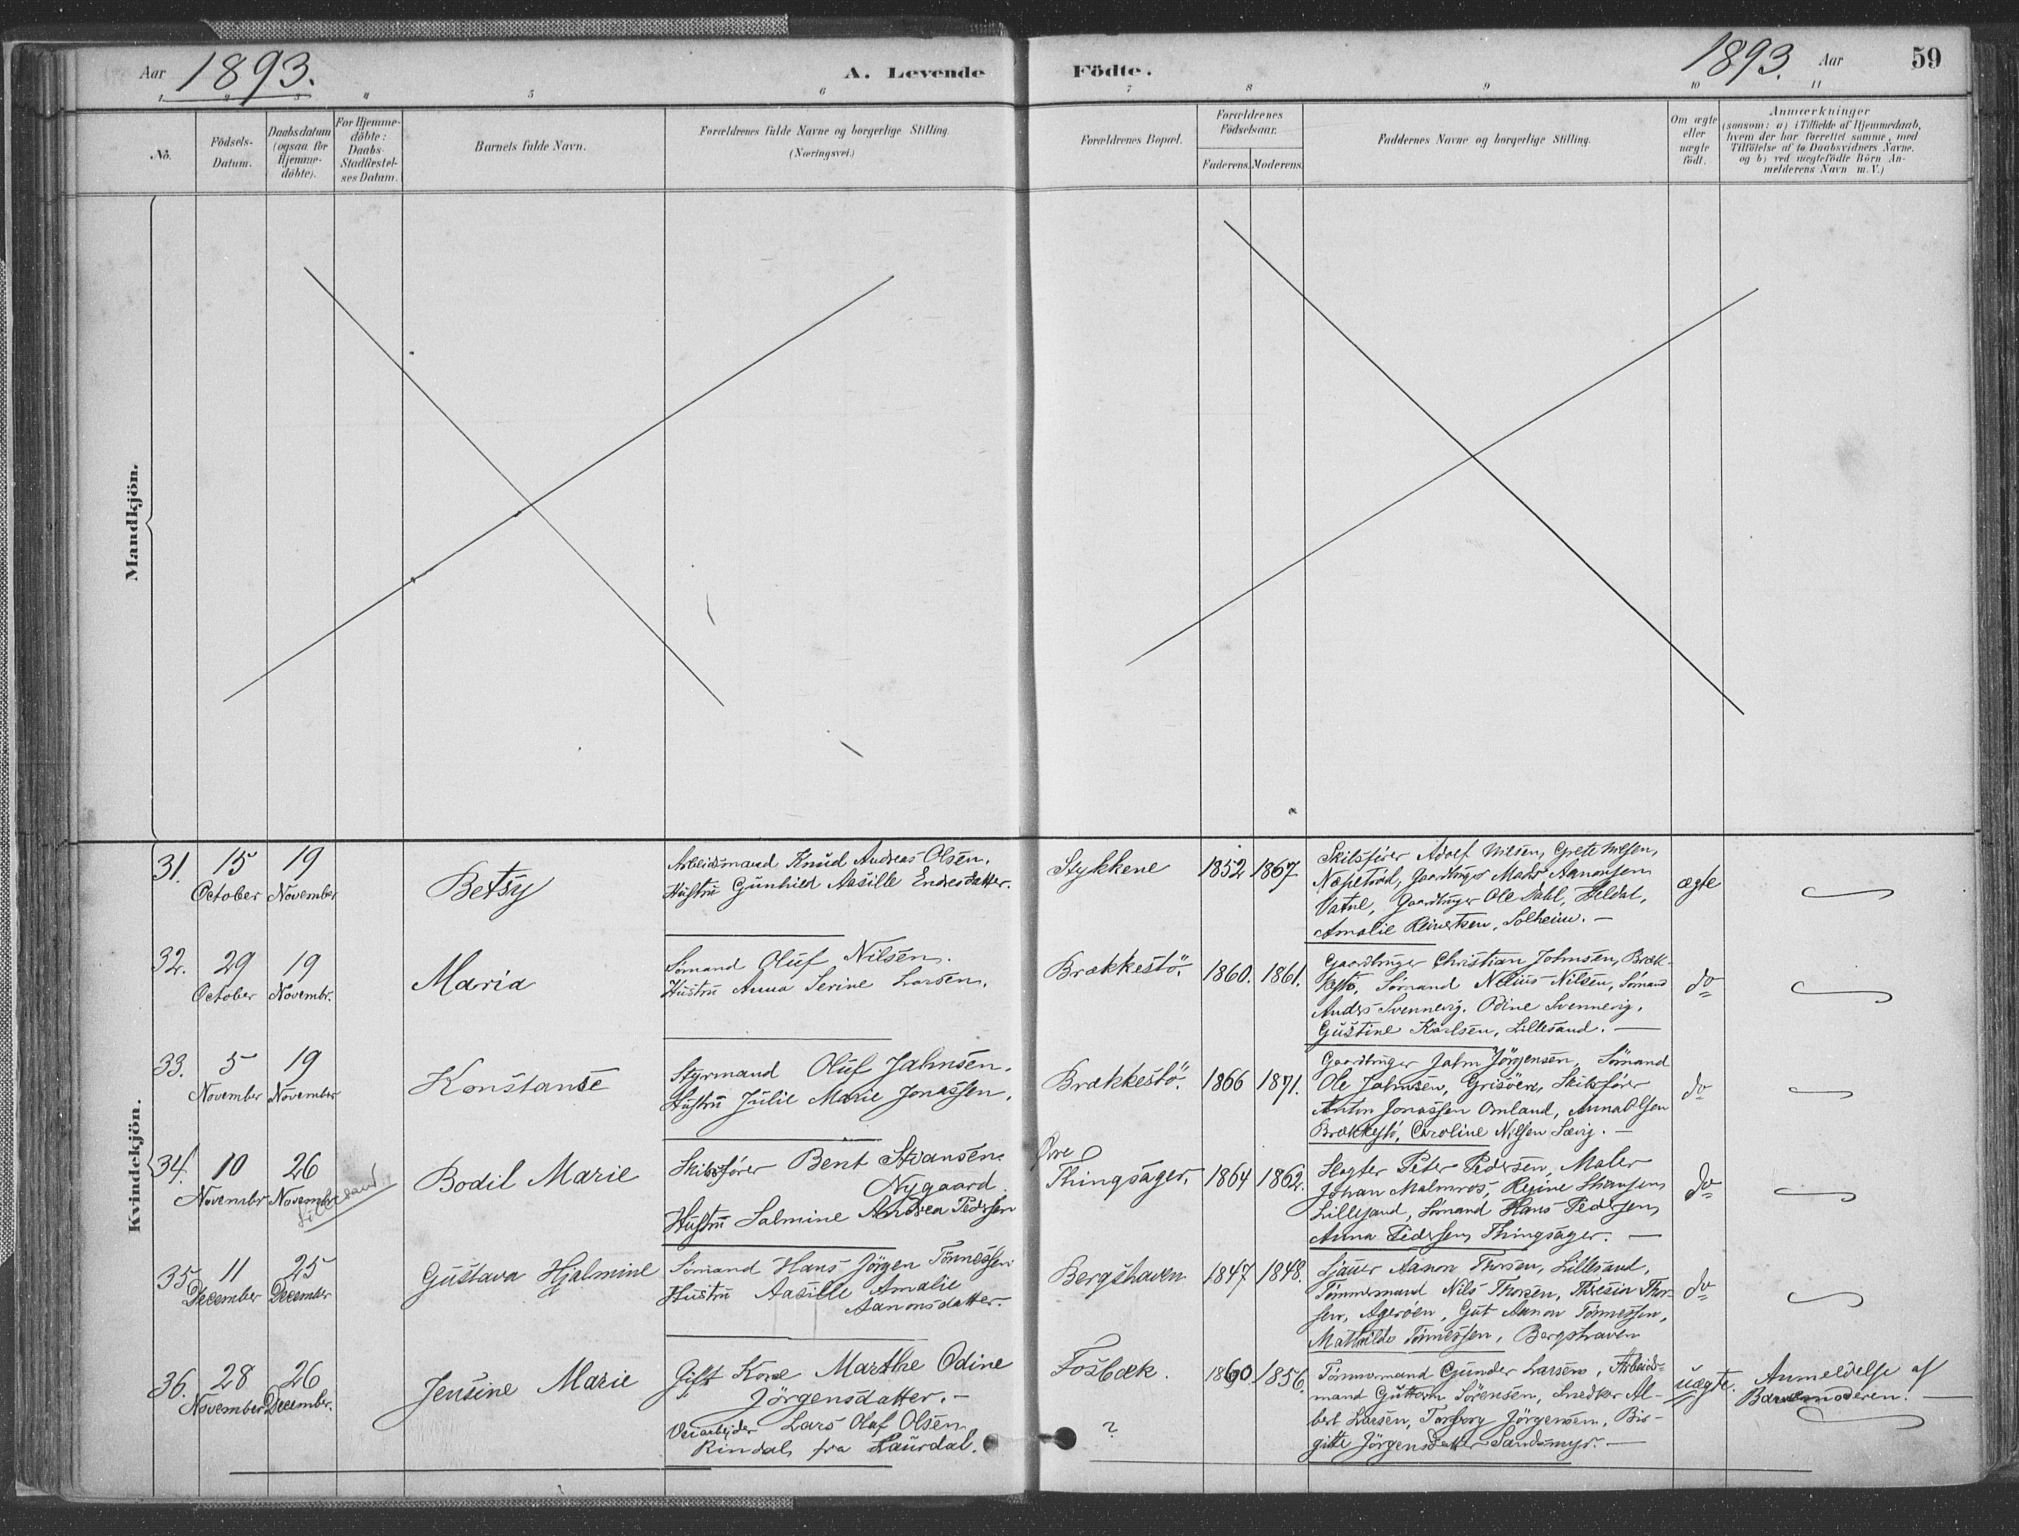 Aar 1893.
A. Levende Födte.
1893. Aar 59
1 2 3 4 5 6 7 8 9 10 11
No.
Födsels-Datum.
Daabsdatum (ogsaa for Hjemmedöbte).
For Hjemmedöbte: Daabs-Stadfæstelses Datum.
Barnets fulde Navn.
Forældrenes fulde Navne og borgerlige Stilling.
(Næringsvei.)
Forældrenes Bopæl.
Forældrenes Födselsaar.
Faderens. Moderens.
Faddernes Navne og borgerlige Stilling.
Om ægte eller uægte födt.
Anmærkninger
(saasom: a) i Tilfælde af Hjemmedaab,
hvem der har forrettet samme, med
Tilföielse af to Daabsvidners Navne.
og b) ved uægtefödte Börn An-
melderens Navn m. V.)
Mandkjön.
Kvindekjön.
31. 15 October 19 November
Betsy
Arbeidsmand Knud Andreas Olsen.
Hustru Gunhild Aasille Endresdatter.
Stykkene 1852 1867
Skibsfører Adolf Nilsen, Grete Nilsen,
Næpetvid, Gaardbruger Mads Aanonsen
Vatne, Gaardbruger Ole Dahl, Heldal,
Amalie Reinertsen, Solheim. —
ægte
32. 29 October 19 Novembr.
Maria
Sømand Oluf Nilsen.
Hustru Anna Serine Larsen.
Brækkestö. 1860. 1861.
Gaardbruger Christian Johnsen, Bræk-
kestö, Sømand Nilius Nilsen, Sømand
Anders Svennevig. Odine Svennevig,
Gustine Karlsen, Lillesand. —
do
33. 5 November 19 November
Konstanse
Styrmand Oluf Jahnsen.
Hustru Julie Marie Jonassen.
Brækkestö. 1866 1871.
Gaardbruger Jahn Jörgensen, Sømand
Ole Jahnsen, Grisöen, Skibsfører
Anton Jonassen Omland, Anna Olsen
Brækkestö, Caroline Nilsen Sævig. —
do
34. 10 November 26 Novembr. Lillesand
Bodil Marie
Skibsfører Bent Stransen
Nygaard
Hustru Salmine Andrea Pedersen
Øvre
Thingsager. 1864 1862.
Slagter Peter Pedersen, Maler
Johan Malmros, Regine Stransen
Lillesand, Sømand Hans Pedersen,
Anna Pedersen, Thingsager. —
do
35. 11 December 25 December
Gustava Hjalmine
Sømand Hans Jörgen Tönnessen
Hustru Aasille Amalie
Aanonsdatter.
Bergshaven 1847 1848.
Sjauer Aanon Thorsen, Lillesand,
Tømmermand Nils Thorsen, Theresia Thor-
sen, Ageröen, Gut Aanon Tönnessen,
Mathilde Tönnessen, Bergshaven
do
36. 28 November 26 December.
Jensine Marie
Gift Kone Marthe Odine
Jörgensdatter. —
Veiarbejder Lars Olaf Olsen
Rindal fra Laurdal.
Fosbæk. 1860 1856.
?
Tømmermand Gunder Larsen, Arbeids-
mand Guttorm Sörensen, Snedker Al-
bert Larsen, Torborg Jörgensen, Bir-
gitte Jörgensdatter Sandsmyr. —
uægte.
Anmeldelse af
Barnemoderen. —